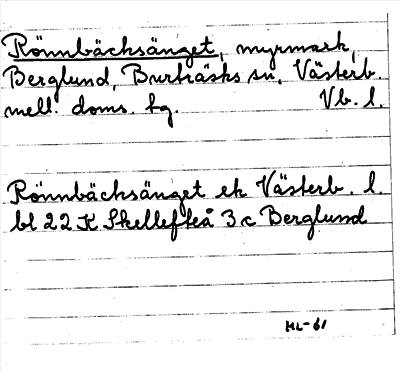 Rönnbäcksänget, myrmark,
Berglund, Burträsks sn, Västerb.
mell. doms. hg. Vb. l.
Rönnbäcksänget ek Västerb. l.
bl 22 K Skellefteå 3 c Berglund
HL-61